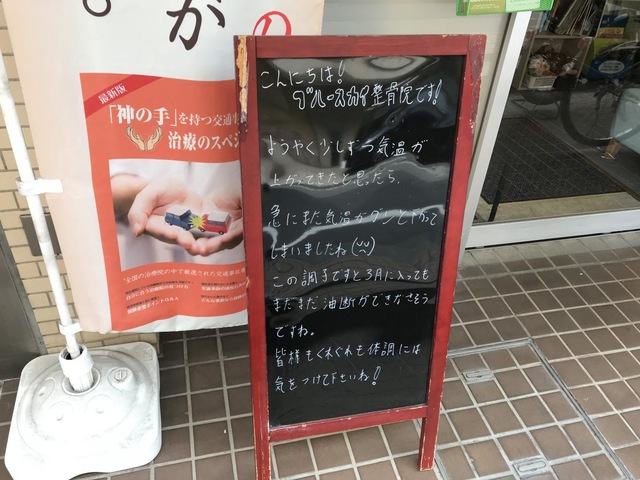 が
の
最新版
「神の手」を持つ交通事
治療のスペシ
こんにちは!
ブルースカイ整骨院です!
ようやく少しずつ気温が
上がってきたと思ったら、
急にまた気温がグンと下がって
しまいましたね
この調子ですと3月に入っても
まだまだ油断ができなさそう
ですね。
皆様もくれぐれも体調には
気をつけて下さいね!